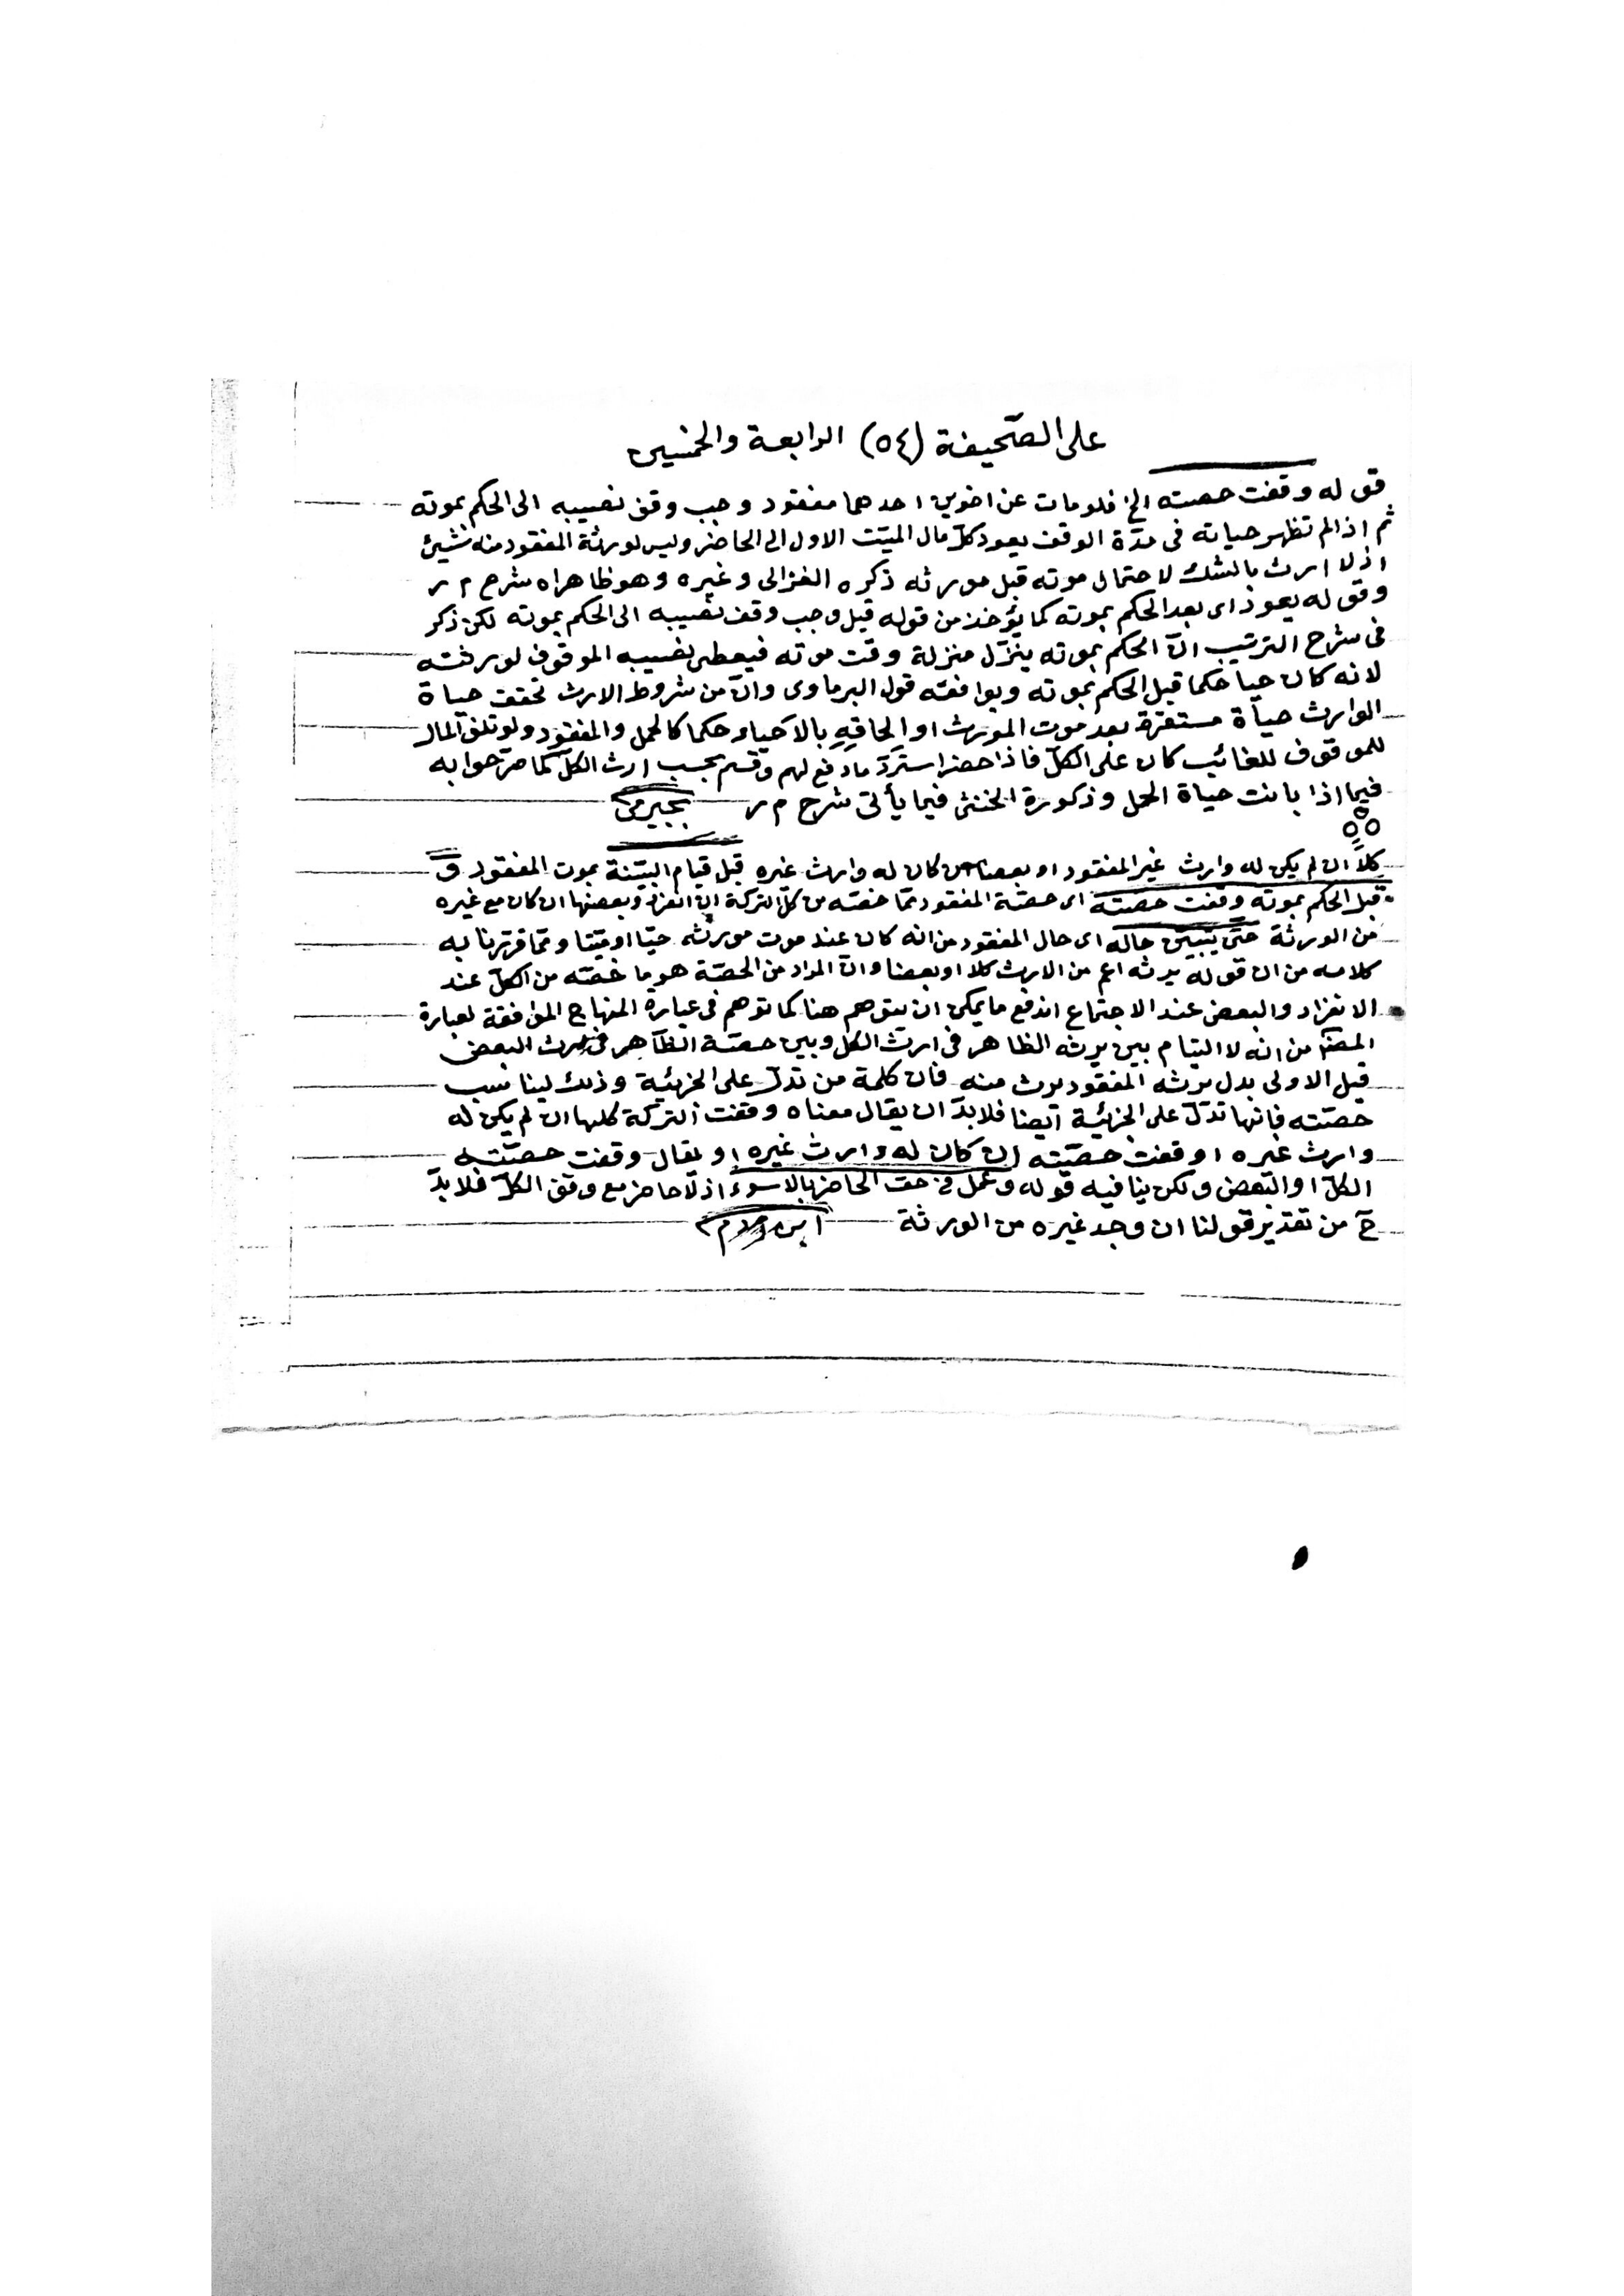 على الصّحيفة (٥٤) الرابعة والخمسين
قوله وقفت حصته الخ فلو مات عن اخوين احدهما مفقود وجب وقف نصيبه الى الحكم بموته
ثم اذا لم تظهر حياته فى مدّة الوقف يعود كلّ مال الميّت الاول الى الحاضر وليس لورثة المفقود منه شيئ
اذ لا ارث بالشك لاحتمال موته قبل مورثه ذكره الغزالى وغيره وهو ظاهر اه شرح م ر
وقوله يعود اى بعد الحكم بموته كما يؤخذ من قوله قبل وجب وقف نصيبه الى الحكم بموته لكن ذكر
فى شرح الترتيب انّ الحكم بموته ينزّل منزلة وقت موته فيعطى نصيبه الموقوف لورثته
لانه كان حيا حكما قبل الحكم بموته ويوافقه قول البرماوى وانّ من شروط الارث تحقق حياة
الوارث حياة مستقرة بعد موت المورث او الحاقِهِ بالاحياء حكما كالحمل والمفقود ولو تلف المال
للموقوف للغائب كان على الكلّ فاذا حضر استردّ ما دفع لهم وقسم بحسب ارث الكلّ كما صرّحوا به
فيما اذا بانت حياة الحمل وذكورة الخنثى فيما يأتى شرح م ر بجيرمى
كلاً ان لم يكن له وارث غير المفقود او بعضا ان كان له وارث غيره قبل قيام البيّنة بموت المفقود و
قبل الحكم بموته وقفت حصته اى حصّة المفقود ممّا خصّه من كلّ التركة ان انفرد وبعضها ان كان مع غيره
من الورثة حتّى يتبيّن حاله اى حال المفقود من انه كان عند موت مورثه حيّا او ميّتا وممّا قرّرنا به
كلامه من ان قوله يرثه اعم من الارث كلا او بعضا وانّ المراد من الحصّة هو ما خصّه من الكلّ عند
الانفراد والبعض عند الاجتماع اندفع ما يمكن ان يتوهم هنا كما توهم فى عبارة المنهاج الموافقة لعبارة
المصنّف من انه لا التيام بين يرثه الظاهر فى ارث الكلّ وبين حصّة الظّاهر فى ارث البعض
قيل الاولى بدل يرثه المفقود يرث منه فان كلمة من تدلّ على الجزئية وذلك ليناسب
حصّته فانها تدلّ على الجزئية ايضا فلا بدّ ان يقال معناه وقفت التركة كلها ان لم يكن له
وارث غيره او وقفت حصّته ان كان له وارث غيره او يقال وقفت حصّته
الكلّ او البعض ولكن ينافيه قوله وعمل فى حق الحاضر بالاسوء اذ لا حاضر مع وقف الكلّ فلا بدّ
ح من تقدير قولنا ان وجد غيره من الورثة